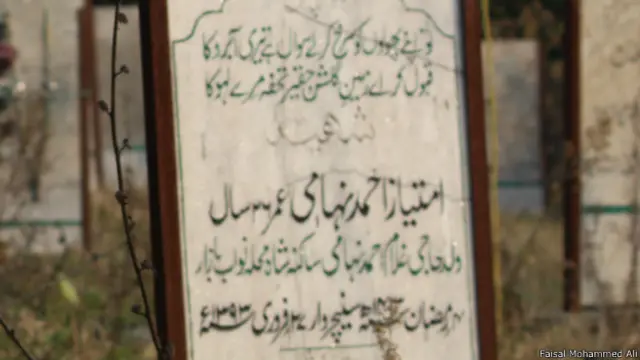 تو اپنے پھولوں کو سرخ کر لے سوال ہے تیری آبرو کا
قبول کر اے زمین گلشن حقیر تحفہ مرے لہو کا
شہید
امتیاز احمد نہامی عمر ۳۶ سال
ولد حاجی غلام احمد نہامی ساکنہ شاہ محلہ نواب بازار
رمضان سنیچروار ۲۷ فروری ۱۹۹۳ء
Faisal Mohammed Ali